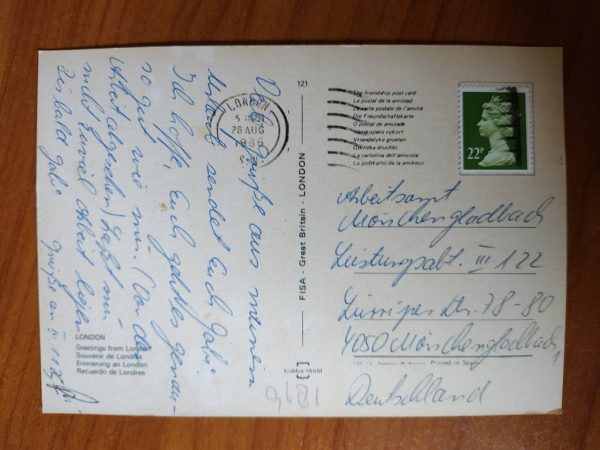 Viele Grüße aus meinem
Urlaub sendet Euch Gabi.
Ich hoffe, Euch geht es genau-
so gut wie mir. (Von der
Arbeit abgesehen) Laßt mir
nicht zuviel Arbeit liegen
Bis bald Gabi
Grüße an III 1123
LONDON
Greetings from London
Souvenir de Londres
Erinnerung an London
Recuerdo de Londres
121
FISA - Great Britain - LONDON
Golden Shield
LONDON
26 AUG
1986
The friendship post card
La postal de la amistad
La carte postale de l'amicié
Die Freundschaftskarte
O postal de amizade
Vänskapens vykort
Vriendelyke groeten
La cartolina dell'amicizia
La postkarto de la amikeco
22P
Arbeitsamt
Mönchengladbach
Leistungsabt. III 122
Lürriper Str. 78-80
4050 Mönchengladbach 1
Printed in Spain
Deutschland